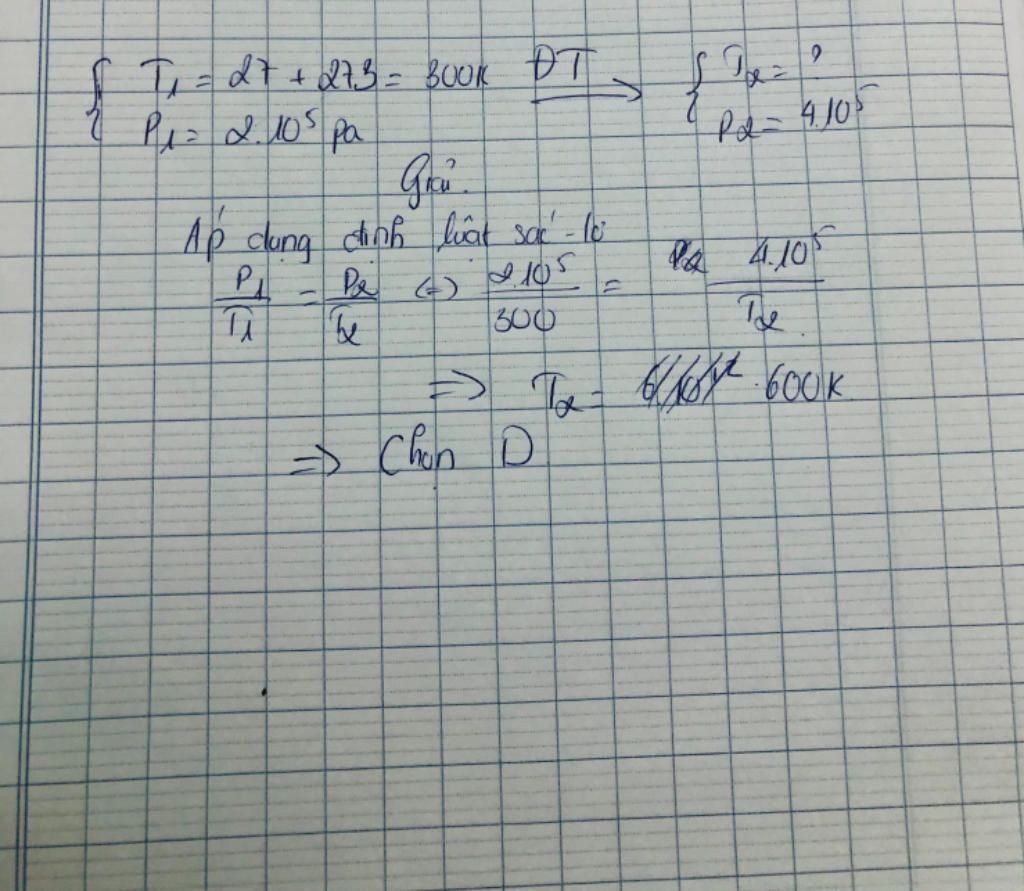 { T₁ = 27 + 273 = 300K ĐT → { T₂ = ?
P₁ = 2.10⁵ pa P₂ = 4.10⁵
Giải.
Áp dụng định luật sác-lơ
P₁/T₁ = P₂/T₂ (=) 2.10⁵/300 = 4.10⁵/T₂
=> T₂ = 600K
=> Chọn D